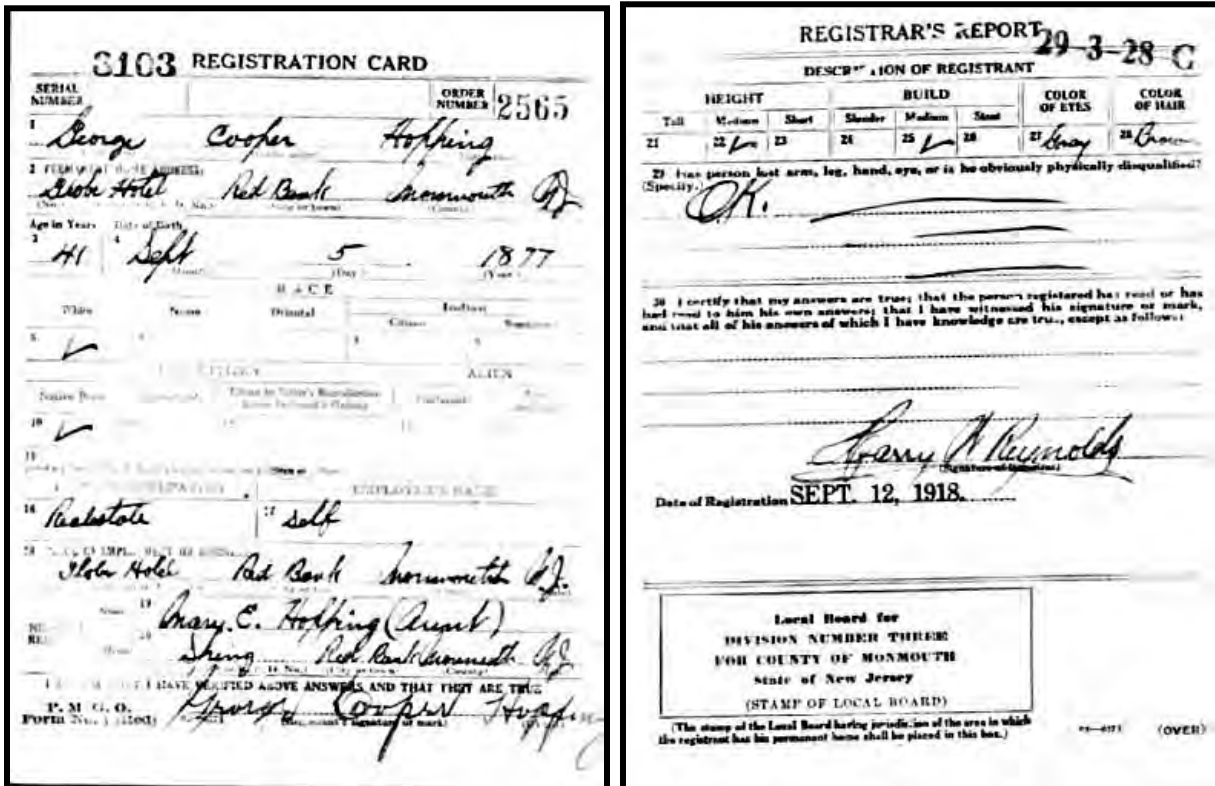 3103 REGISTRATION CARD
SERIAL NUMBER
ORDER NUMBER 2565
1 George Cooper Hopping
2 PERMANENT HOME ADDRESS:
Globe Hotel Red Bank Monmouth NJ
Age in Years Date of Birth
3 41 4 Sept 5 1877
(Day) (Year)
RACE
White Negro Oriental Indian
Citizen
5
ALIEN
Native Born
10
16 Realestate 17 Self
Globe Hotel Red Bank Monmouth N.J.
Name 19 Mary. E. Hopping (Aunt)
20 Red Bank Monmouth NJ
I HAVE VERIFIED ABOVE ANSWERS AND THAT THEY ARE TRUE
P. M. G. O.
Form No. 1 (Red) George Cooper Hopping
REGISTRAR'S REPORT
29-3-28 C
DESCRIPTION OF REGISTRANT
HEIGHT BUILD COLOR OF EYES COLOR OF HAIR
Tall Medium Short Slender Medium Stout
21 22 23 24 25 26 27 Gray 28 Brown
29 Has person lost arm, leg, hand, eye, or is he obviously physically disqualified?
(Specify.) O.K.
30 I certify that my answers are true; that the person registered has read or has
had read to him his own answers; that I have witnessed his signature or mark,
and that all of his answers of which I have knowledge are true, except as follows:
Harry Reynolds
Date of Registration SEPT. 12, 1918.
Local Board for
DIVISION NUMBER THREE
FOR COUNTY OF MONMOUTH
State of New Jersey
(STAMP OF LOCAL BOARD)
(The stamp of the Local Board having jurisdiction of the area in which
the registrant has his permanent home shall be placed in this box.)
(OVER)